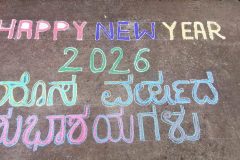 HAPPY NEW YEAR
2026
ಹೊಸ ವರ್ಷದ
ಶುಭಾಶಯಗಳು